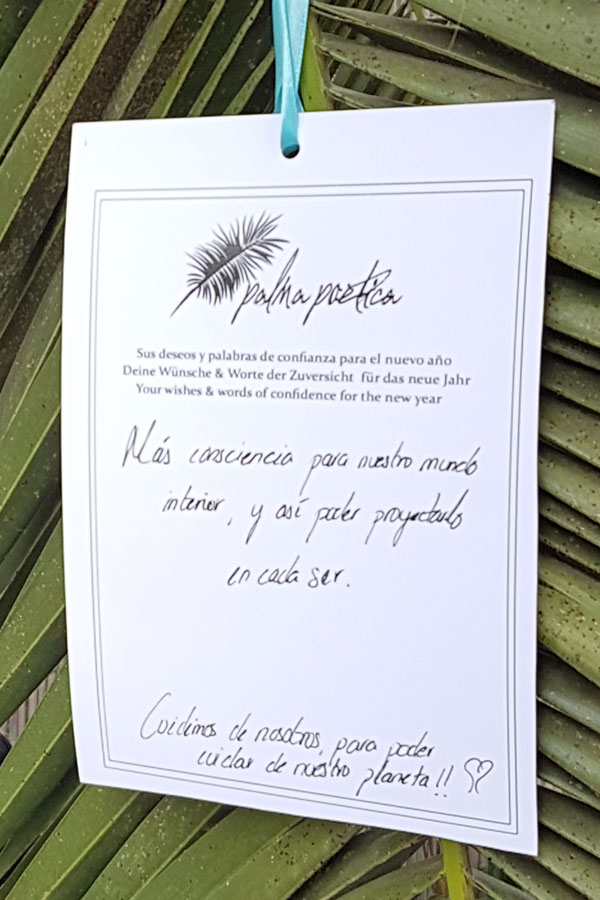 palma poetica
Sus deseos y palabras de confianza para el nuevo año
Deine Wünsche & Worte der Zuversicht für das neue Jahr
Your wishes & words of confidence for the new year
Más consciencia para nuestro mundo
interior, y así poder proyectarlo
en cada ser.
Cuidemos de nosotros, para poder
cuidar de nuestro planeta!! ♡